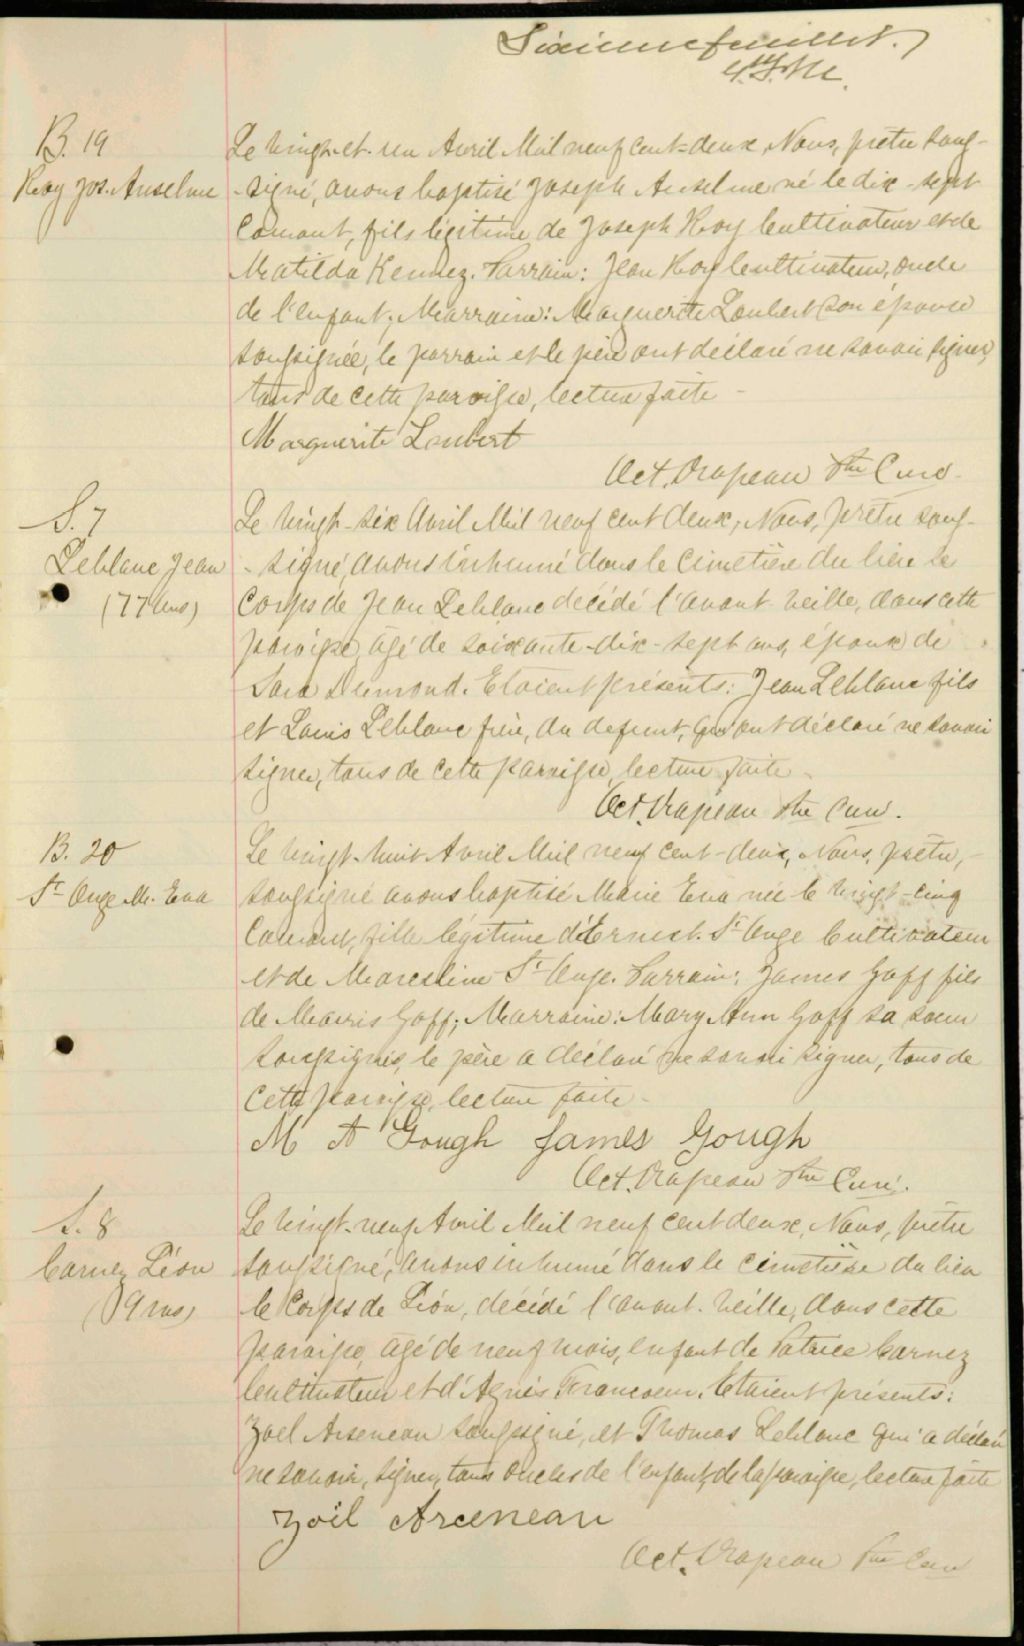 Sixieme feuillet.
B. 19
Roy Jos. Anselme
Le vingt-et-un Avril Mil neuf cent-deux, Nous, prêtre sous-
-signé, avons baptisé Joseph Anselme né le dix-sept
Courant, fils légitime de Joseph Roy Cultivateur et de
Matilda Kennez. Parrain: Jean Roy Cultivateur, oncle
de l'enfant; Marraine: Marguerite Loubert son épouse
soussignée, le parrain et le père ont déclaré ne savoir signer,
tous de cette paroisse, lecture faite -
Marguerite Loubert
Oct. Drapeau Ptre Curé.
S. 7
Leblanc Jean
(77 ans)
Le vingt-six Avril Mil neuf cent deux, Nous, prêtre sous-
-signé, avons inhumé dans le cimetière du lieu le
Corps de Jean Leblanc décédé l'avant-veille, dans cette
paroisse, âgé de soixante-dix-sept ans, époux de
Sara Dumond. Etaient présents: Jean Leblanc fils
et Louis Leblanc frère, du defunt, qui ont déclaré ne savoir
signer, tous de cette paroisse, lecture faite -
Oct. Drapeau Ptre Curé.
B. 20
St Ange M. Eva
Le vingt-huit Avril Mil neuf cent-deux, Nous, prêtre,-
soussigné avons baptisé Marie Eva née le vingt-cinq
Courant, fille légitime d'Ernest. St Ange Cultivateur
et de Marceline St Ange. Parrain: James Goff fils
de Morris Goff; Marraine: Mary Ann Goff sa soeur
soussignés, le père a déclaré ne savoir signer, tous de
cette paroisse, lecture faite -
M A Gough James Gough
Oct. Drapeau Ptre Curé.
S. 8
Carnez Léon
(9 ms)
Le vingt-neuf Avril Mil neuf cent deux, Nous, prêtre
soussigné, avons inhumé dans le cimetière du lieu
le Corps de Léon, décédé l'avant-veille, dans cette
paroisse, âgé de neuf mois, enfant de Patrice Carnez
Cultivateur et d'Agnès Francoeur. Etaient présents:
Zoel Arseneau soussigné, et Thomas Leblanc qui a déclaré
ne savoir, signer, tous oncles de l'enfant, de la paroisse, lecture faite
Zoël Arceneau
Oct. Drapeau Ptre Curé